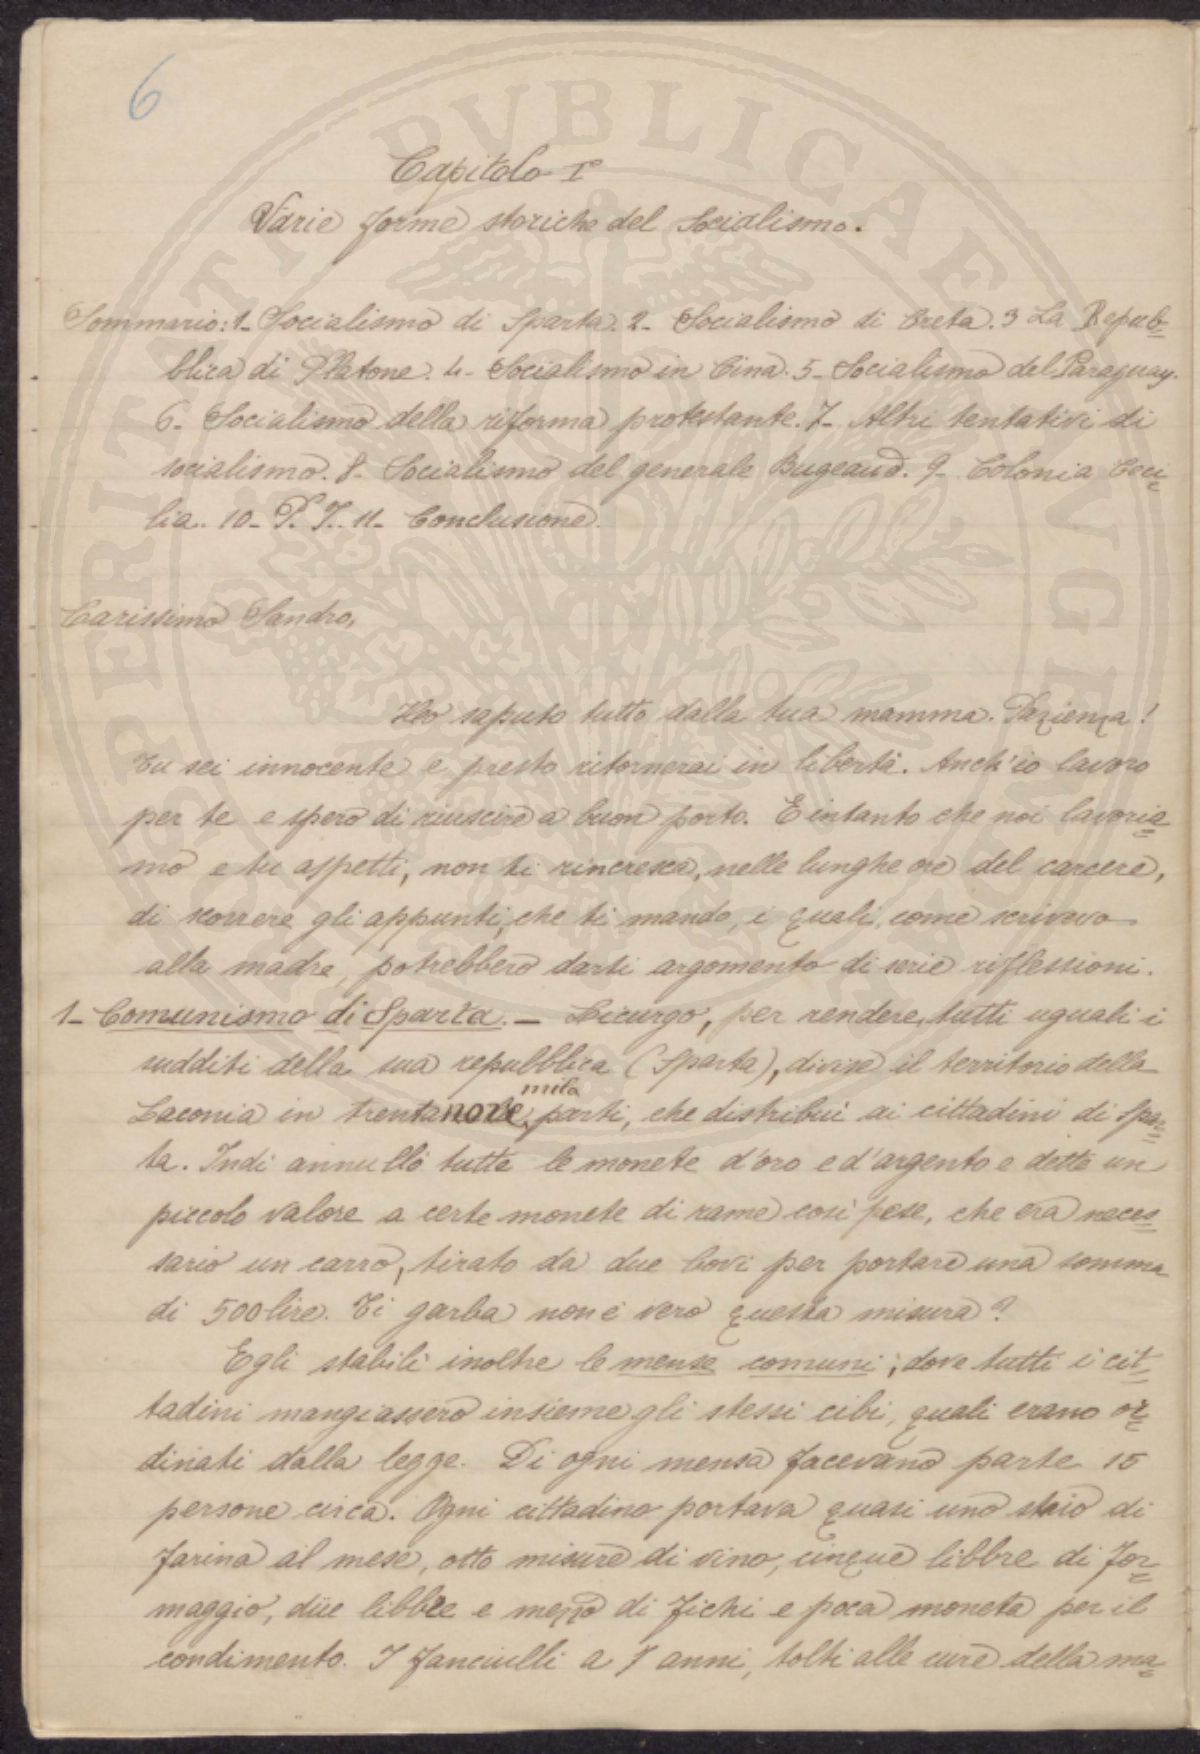 6
Capitolo I°
Varie forme storiche del Socialismo.
Sommario: 1- Socialismo di Sparta. 2- Socialismo di Creta. 3 La Repub=
blica di Platone. 4- Socialismo in Cina. 5- Socialismo del Paraguay.
6- Socialismo della riforma protestante. 7- Altri tentativi di
socialismo. 8- Socialismo del generale Bugeaud. 9- Colonia Ceci=
lia. 10- P. I. 11- Conclusione.
Carissimo Sandro,
Ho saputo tutto dalla tua mamma. Pazienza!
Tu sei innocente e presto ritornerai in libertà. Anch'io lavoro
per te e spero di riuscire a buon porto. E intanto che noi lavoria=
mo e tu aspetti, non ti rincresca, nelle lunghe ore del carcere,
di scorrere gli appunti, che ti mando, i quali, come scrivevo
alla madre, potrebbero darti argomento di serie riflessioni.
1- Comunismo di Sparta. — Licurgo, per rendere tutti uguali i
sudditi della sua repubblica (Sparta), divise il territorio della
Laconia in trentanove mila parti, che distribuì ai cittadini di Spar=
ta. Indi annullò tutte le monete d'oro e d'argento e dette un
piccolo valore a certe monete di rame così pese, che era neces=
sario un carro, tirato da due bovi per portare una somma
di 500 lire. Ti garba non è vero questa misura?
Egli stabilì inoltre le mense comuni, dove tutti i cit=
tadini mangiassero insieme gli stessi cibi, quali erano or=
dinati dalla legge. Di ogni mensa facevano parte 15
persone circa. Ogni cittadino portava quasi uno staio di
farina al mese, otto misure di vino, cinque libbre di for=
maggio, due libbre e mezzo di fichi e poca moneta per il
condimento. I fanciulli a 7 anni, tolti alle cure della ma=
PVBLICAE